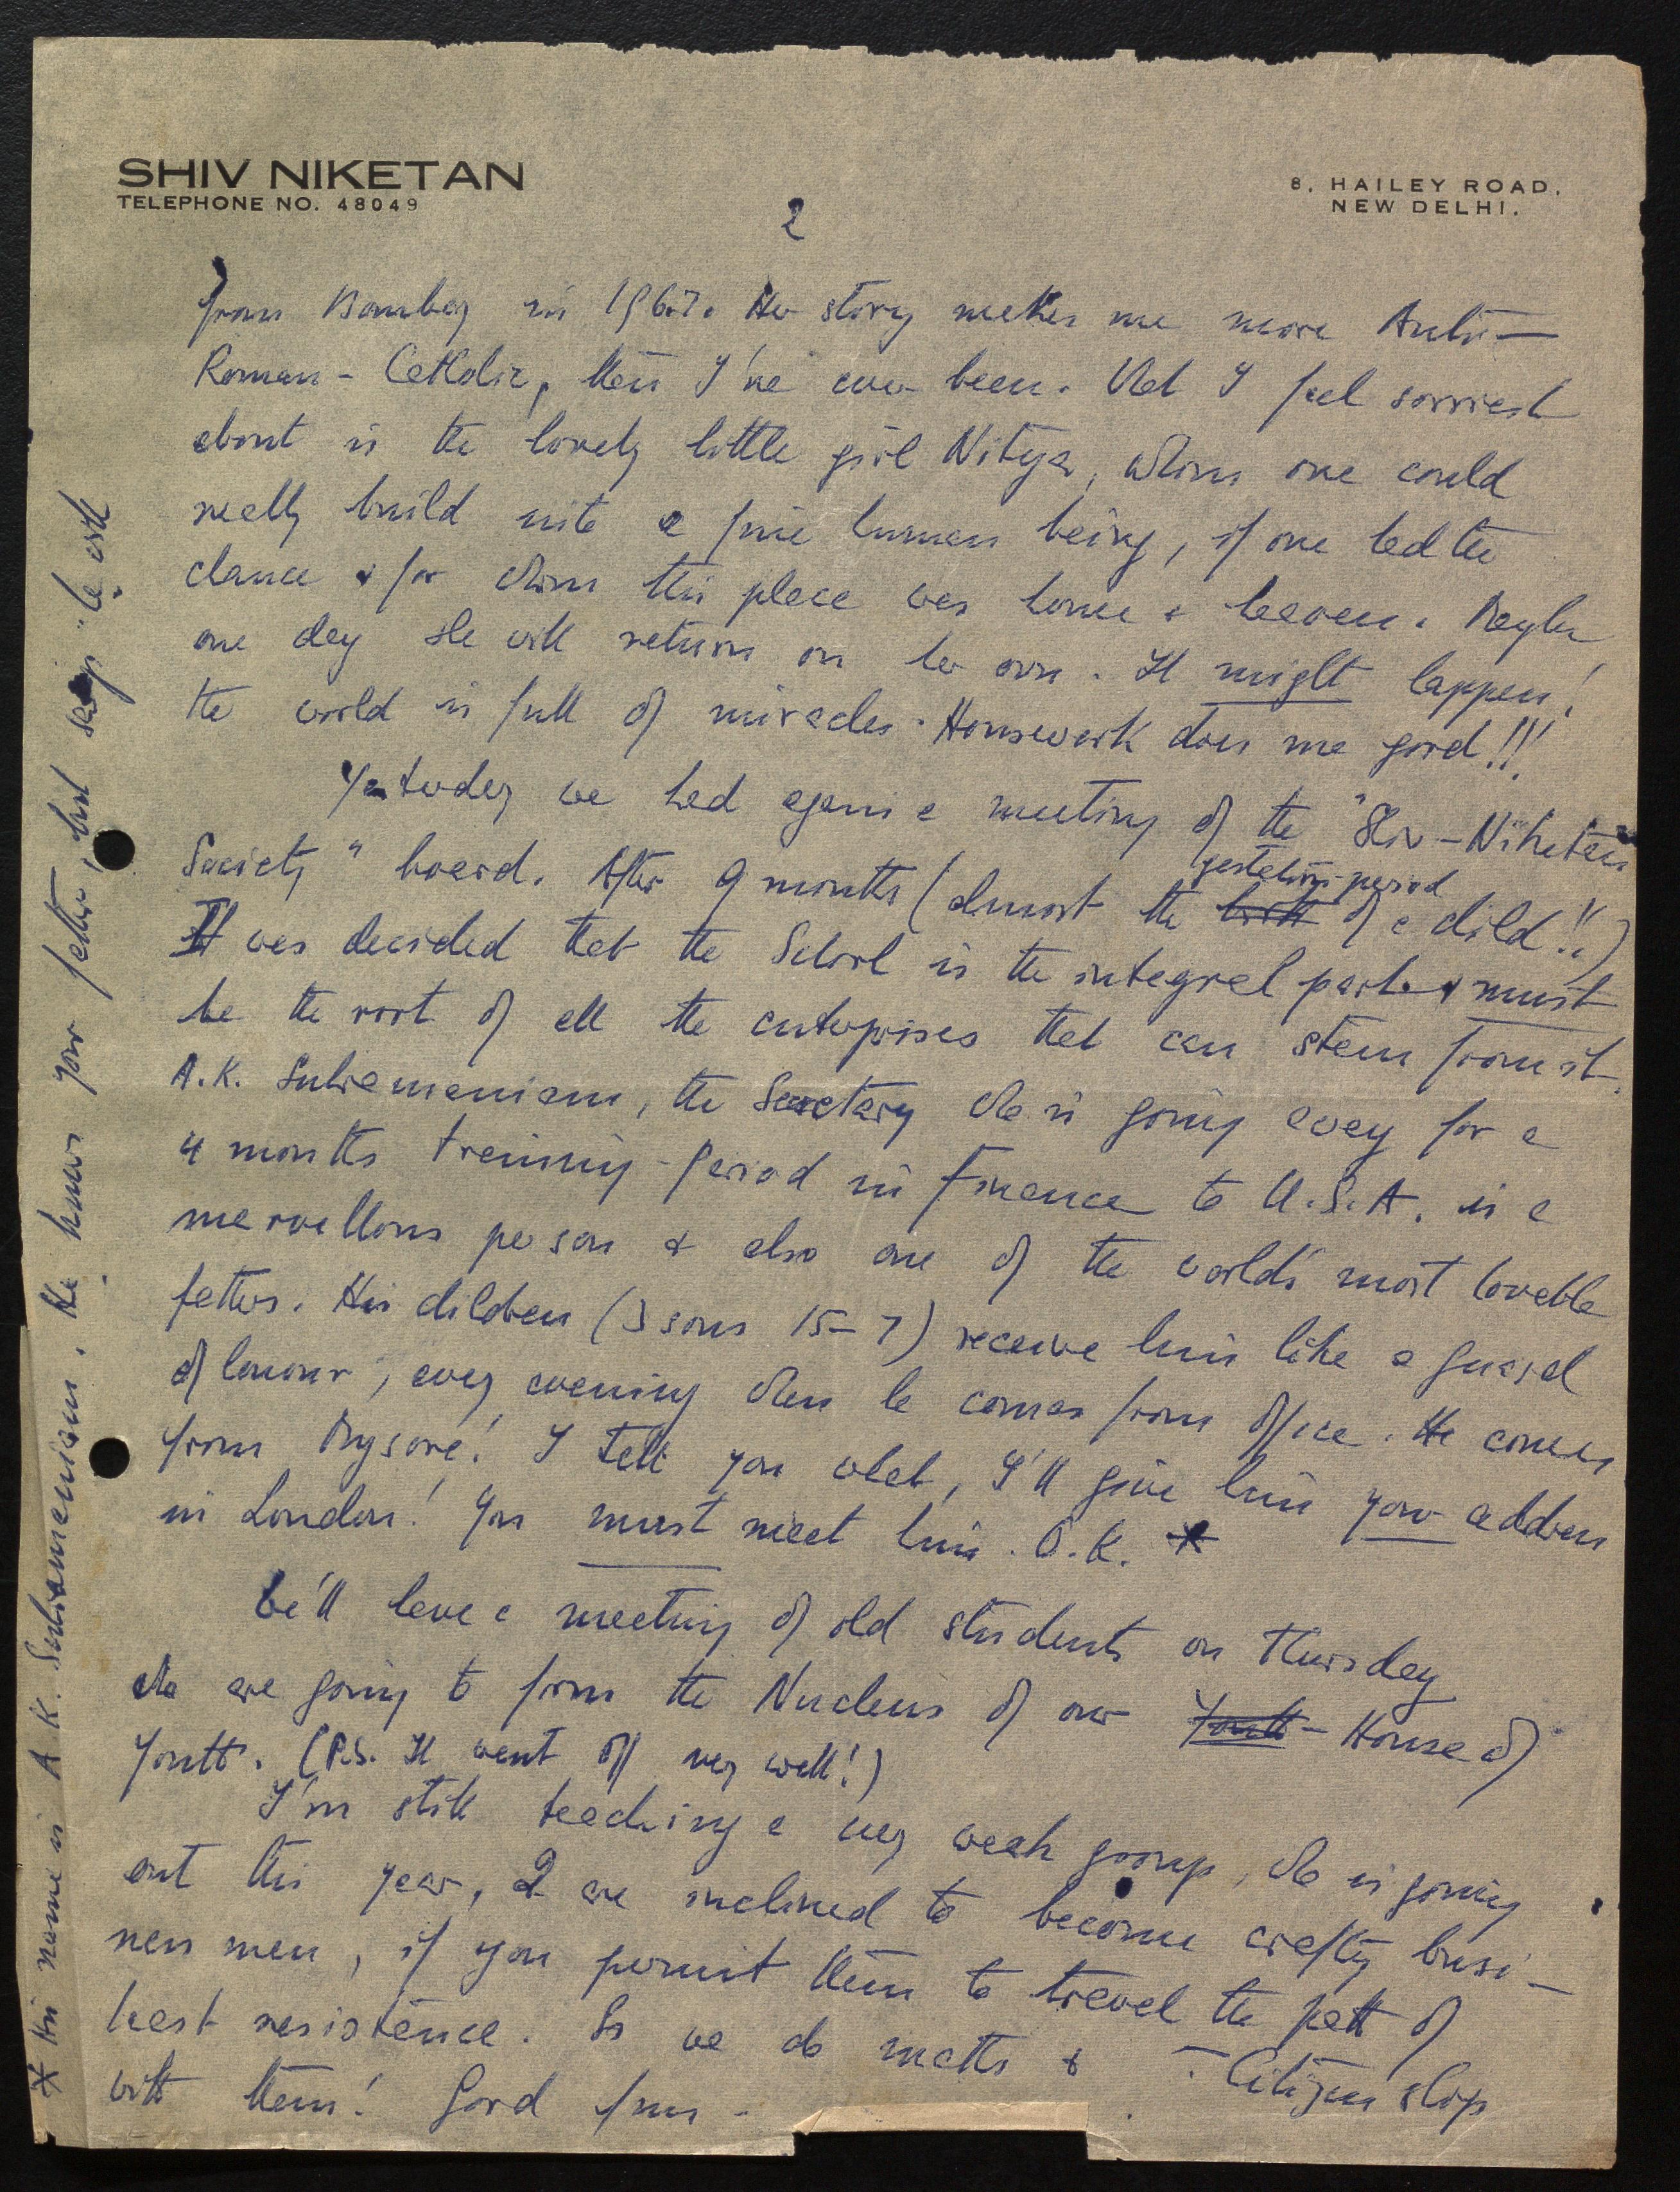 SHIV NIKETAN
TELEPHONE NO. 48049
8, HAILEY ROAD,
NEW DELHI.
2
from Bombay in 1967. Her story makes me more Anti-
Roman-Catholic, than I've ever been. What I feel sorriest
about is the lovely little girl Nitya, whom one could
really build into a fine human being, if one had the
chance & for whom this place was home & heaven. Maybe
one day she will return on her own. It might happen!
the world is full of miracles. Housework does me good!!!
Yesterday we had again a meeting of the "Shiv-Niketan
Society" board. After 9 months (almost the birth gestation-period of a child!!)
It was decided that the School is the integral part & must
be the root of all the enterprises that can stem from it.
A.K. Subramaniam, the Secretary who is going away for a
4 months training-period in Finance to U.S.A. is a
marvellous person & also one of the world's most lovable
fathers. His children (3 sons 15-7) receive him like a guard
of honour, every evening when he comes from office. He comes
from Mysore! I tell you what, I'll give him your address
in London! You must meet him. O.K. *
We'll have a meeting of old students on Thursday
who are going to form the Nucleus of our Youth-House of
Youth. (P.S. It went off very well!)
I'm still teaching a very weak group, who is going
out this year, 2 are inclined to become crafty busi-
ness men, if you permit them to travel the path of
least resistance. So we do maths & - Citizenship
with them! Good fun -
* His name is A K. Subramaniam. He knows your father, but says "he will